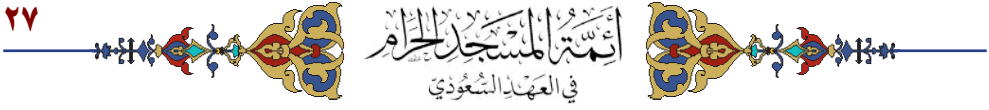 ٢٧
أَئِمَّةُ المَسْجِدِ الحَرَامِ
في العَهْدِ السُّعُودِيّ